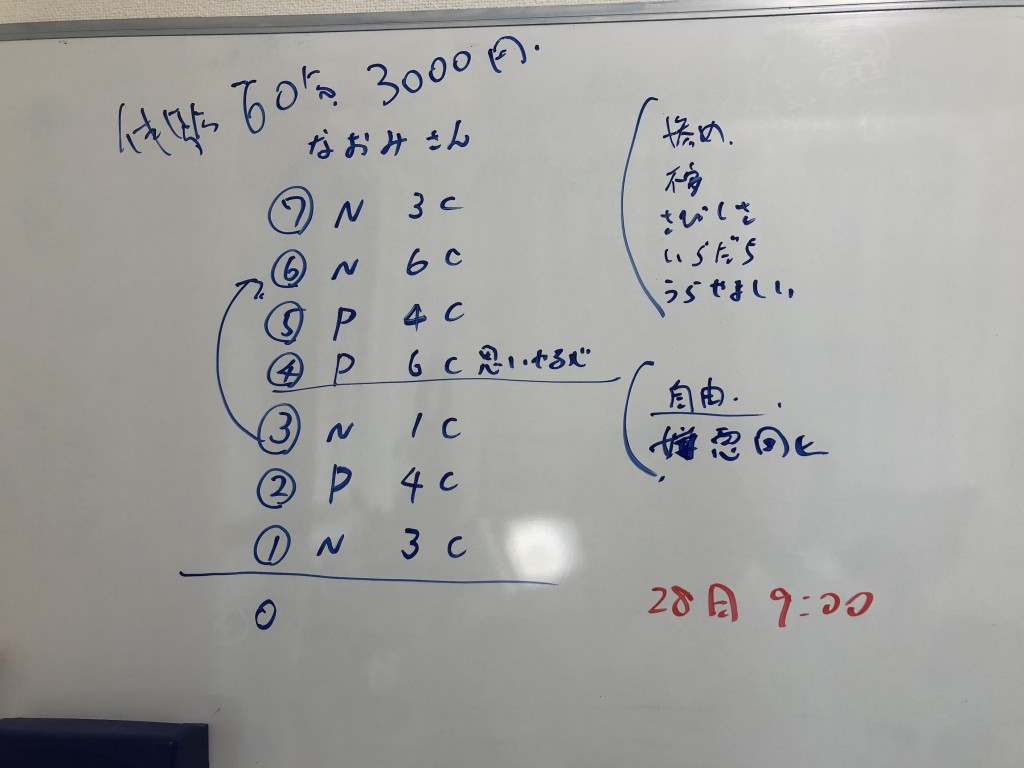 体験 60分 3000円.
なおみさん
⑦ N 3C
⑥ N 6C
⑤ P 4C
④ P 6C 思いやるが
③ N 1C
② P 4C
① N 3C
0
さびしさ
いらだち
うらやましい.
自由.
嫌悪回ヒ
28日 9:00